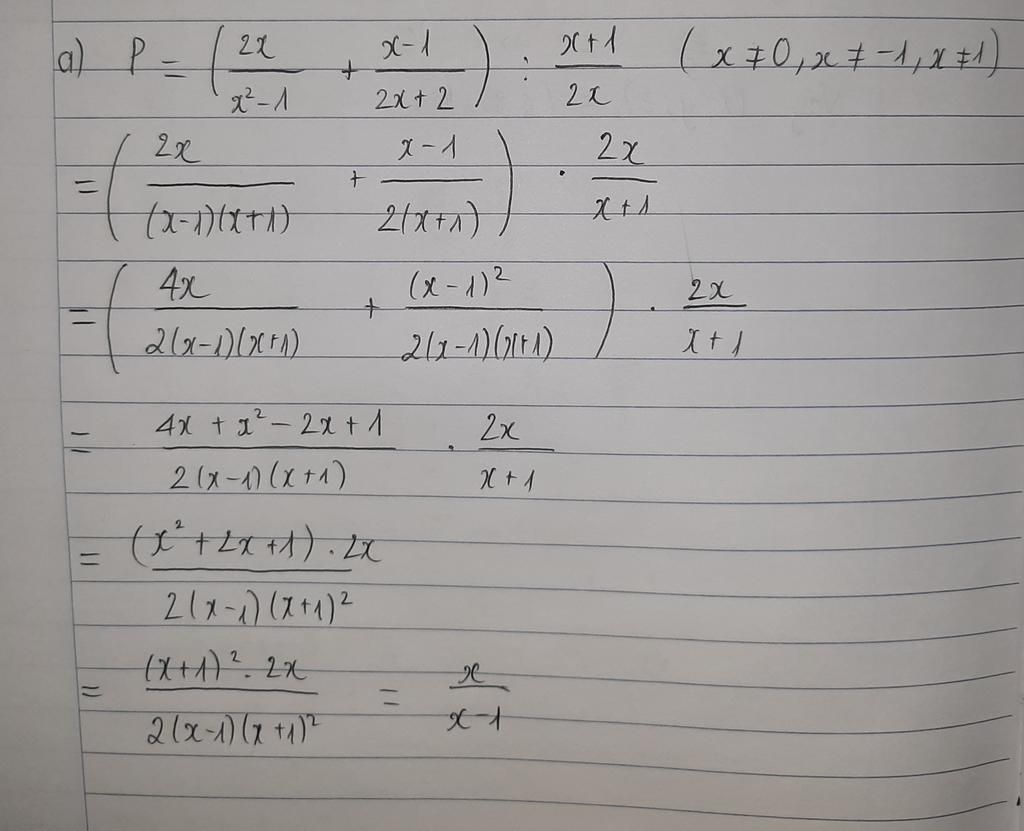 a) P = (2x/(x²-1) + (x-1)/(2x+2)) : (x+1)/(2x) (x ≠ 0, x ≠ -1, x ≠ 1)
= (2x/((x-1)(x+1)) + (x-1)/(2(x+1))) . 2x/(x+1)
= (4x/(2(x-1)(x+1)) + (x-1)²/(2(x-1)(x+1))) . 2x/(x+1)
= (4x + x² - 2x + 1)/(2(x-1)(x+1)) . 2x/(x+1)
= ((x² + 2x + 1) . 2x)/(2(x-1)(x+1)²)
= ((x+1)² . 2x)/(2(x-1)(x+1)²) = x/(x-1)